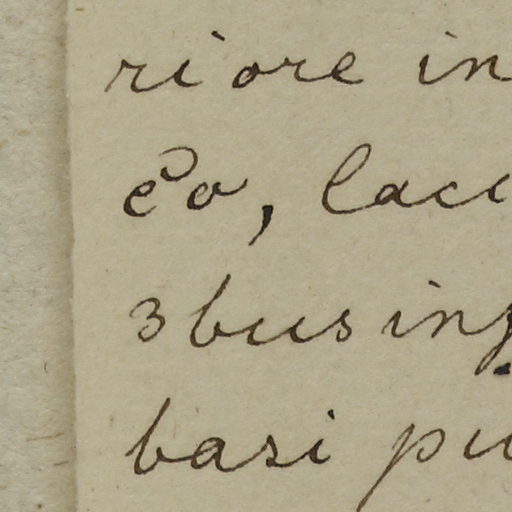 riore in
eo, laci
3bus inf
basi pu